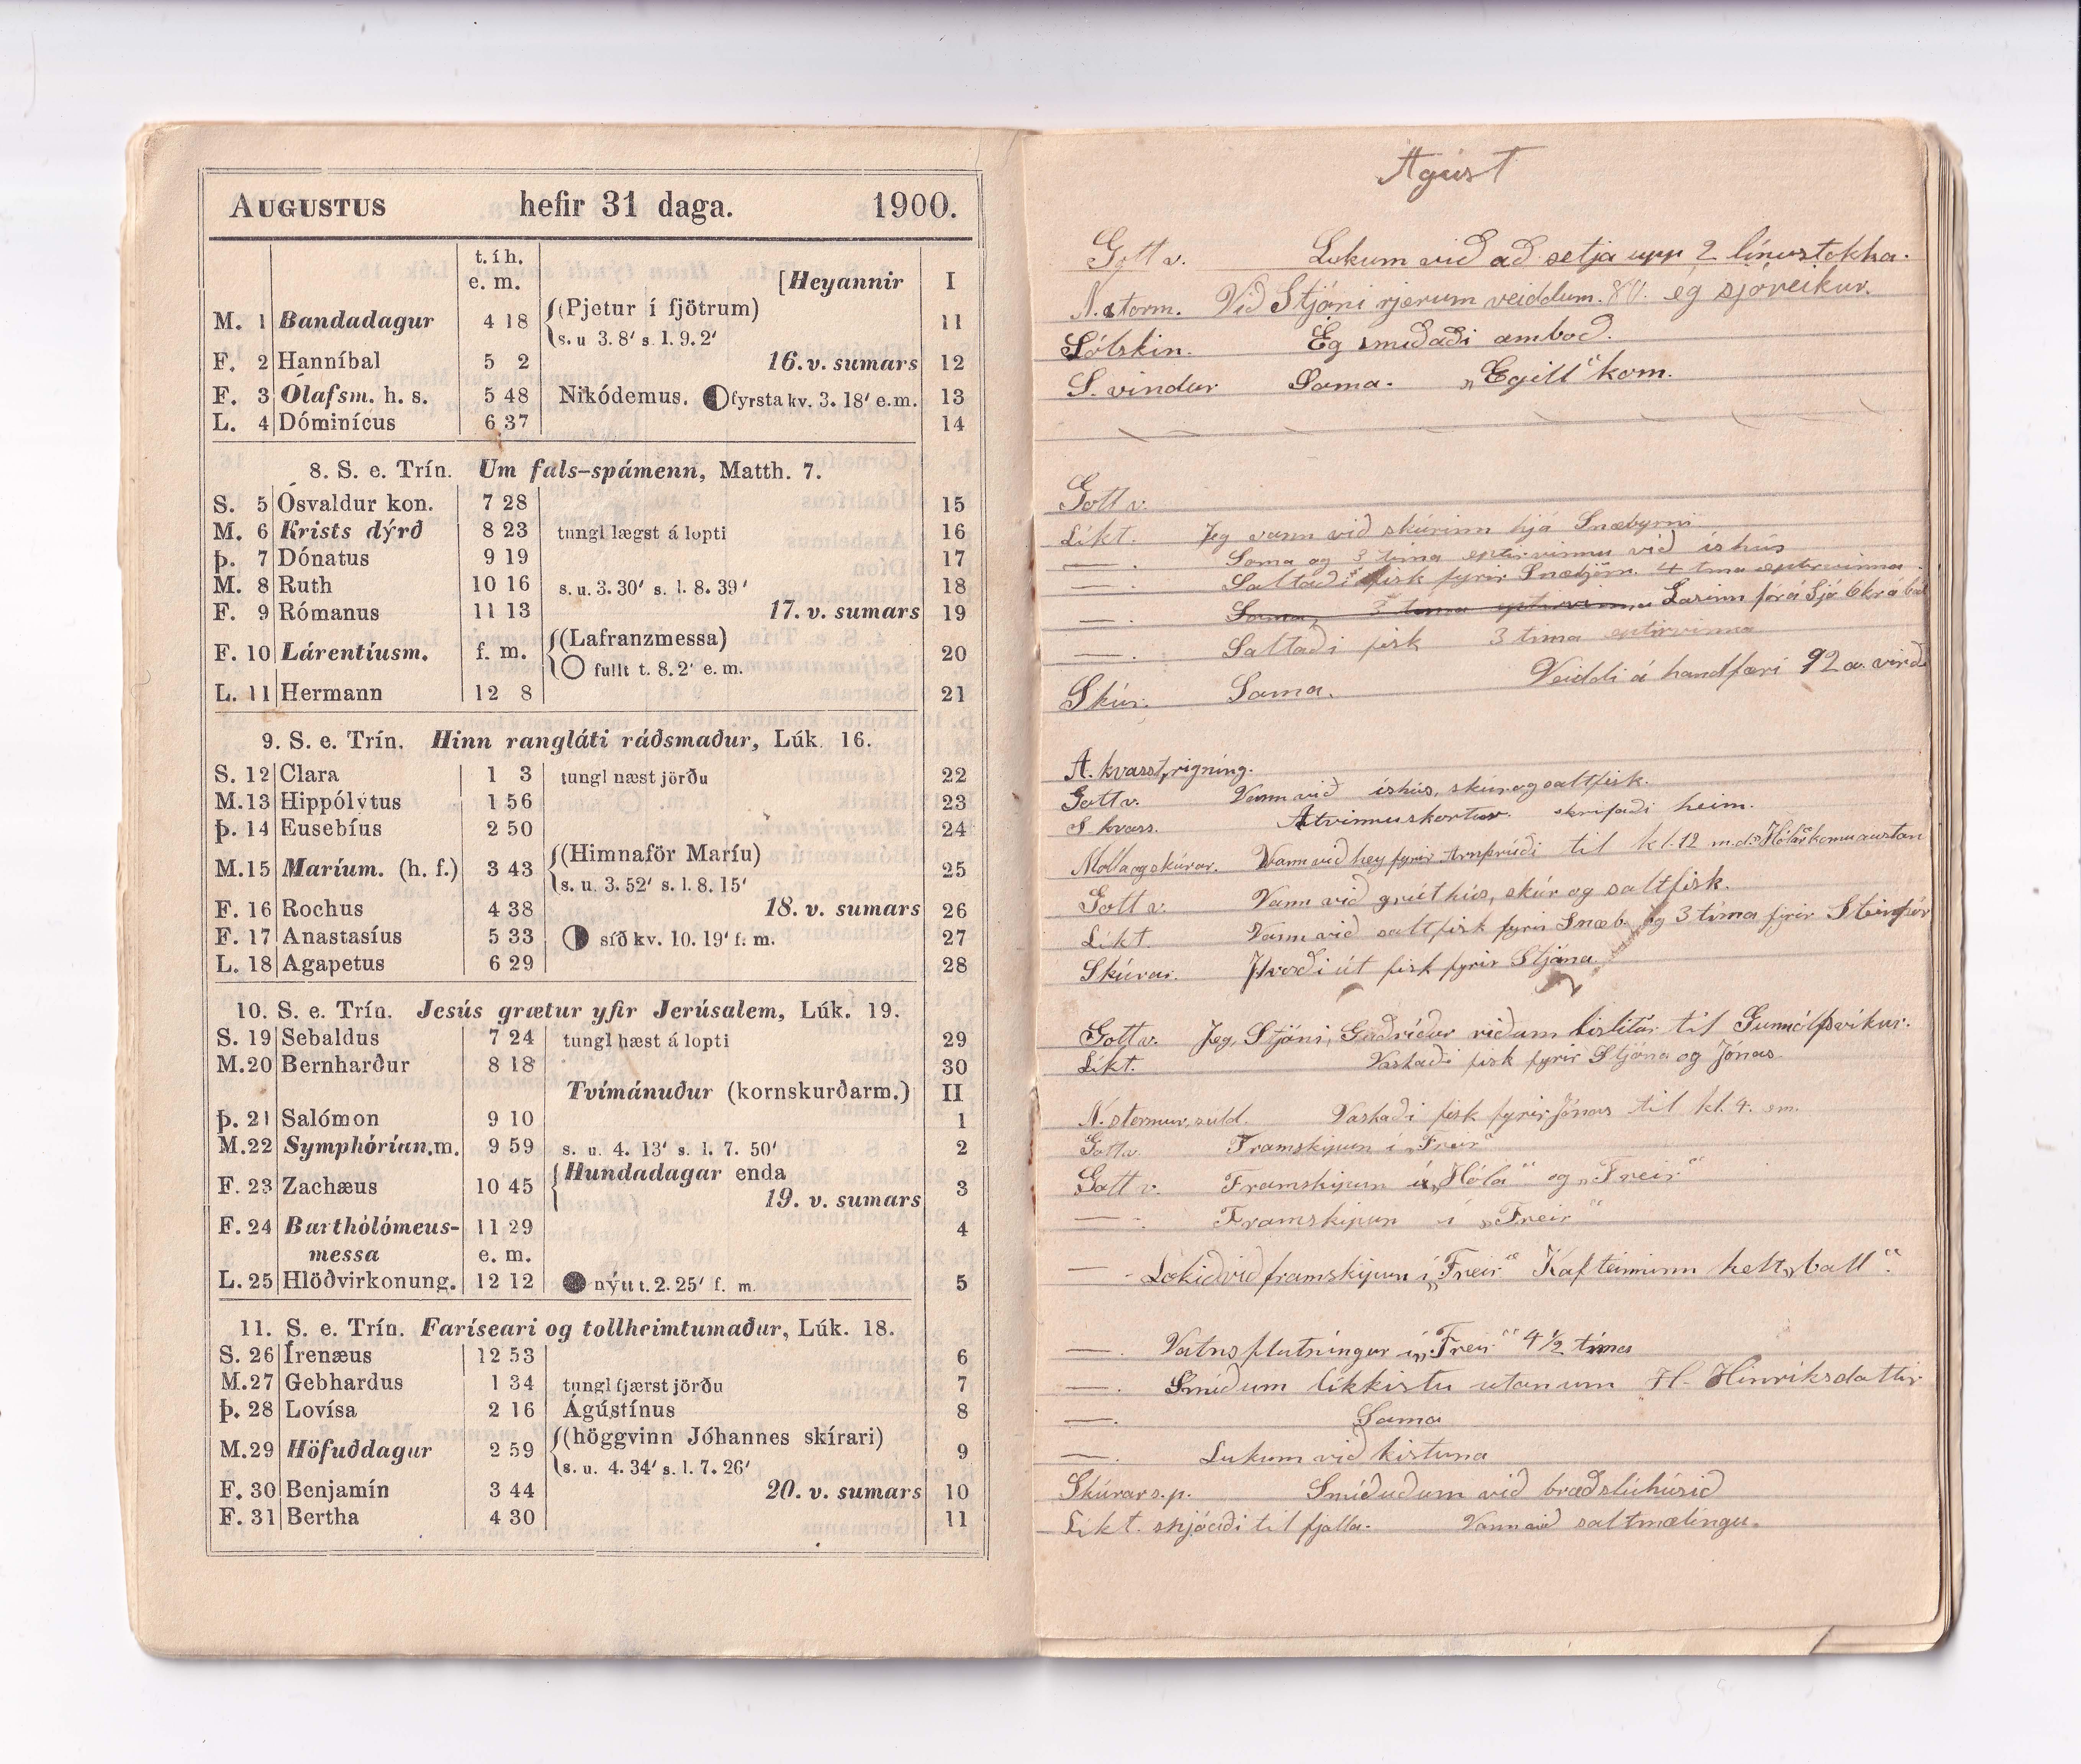 AUGUSTUS hefir 31 daga. 1900.
t. í h.
e. m. [Heyannir I
M. 1 Bandadagur 4 18 (Pjetur í fjötrum) 11
s. u 3. 8' s. l. 9. 2'
F. 2 Hanníbal 5 2 16. v. sumars 12
F. 3 Ólafsm. h. s. 5 48 Nikódemus. fyrsta kv. 3. 18' e. m. 13
L. 4 Dóminícus 6 37 14
8. S. e. Trín. Um fals-spámenn, Matth. 7.
S. 5 Ósvaldur kon. 7 28 15
M. 6 Krists dýrð 8 23 tungl lægst á lopti 16
Þ. 7 Dónatus 9 19 17
M. 8 Ruth 10 16 s. u. 3. 30' s. l. 8. 39' 18
F. 9 Rómanus 11 13 17. v. sumars 19
F. 10 Lárentíusm. f. m. (Lafranzmessa) 20
fullt t. 8. 2' e. m.
L. 11 Hermann 12 8 21
9. S. e. Trín. Hinn rangláti ráðsmaður, Lúk. 16.
S. 12 Clara 1 3 tungl næst jörðu 22
M. 13 Hippólytus 1 56 23
Þ. 14 Eusebíus 2 50 24
M. 15 Maríum. (h. f.) 3 43 (Himnaför Maríu) 25
s. u. 3. 52' s. l. 8. 15'
F. 16 Rochus 4 38 18. v. sumars 26
F. 17 Anastasíus 5 33 síð kv. 10. 19' f. m. 27
L. 18 Agapetus 6 29 28
10. S. e. Trín. Jesús grætur yfir Jerúsalem, Lúk. 19.
S. 19 Sebaldus 7 24 tungl hæst á lopti 29
M. 20 Bernharður 8 18 30
Tvímánuður (kornskurðarm.) II
Þ. 21 Salómon 9 10 1
M. 22 Symphórían. m. 9 59 s. u. 4. 13' s. l. 7. 50' 2
F. 23 Zachæus 10 45 Hundadagar enda 3
19. v. sumars
F. 24 Barthólómeus- 11 29 4
messa e. m.
L. 25 Hlöðvir konung. 12 12 nýtt t. 2. 25' f. m. 5
11. S. e. Trín. Faríseari og tollheimtumaður, Lúk. 18.
S. 26 Írenæus 12 53 6
M. 27 Gebhardus 1 34 tungl fjærst jörðu 7
Þ. 28 Lovísa 2 16 Ágústínus 8
M. 29 Höfuðdagur 2 59 (höggvinn Jóhannes skírari) 9
s. u. 4. 34' s. l. 7. 26'
F. 30 Benjamín 3 44 20. v. sumars 10
F. 31 Bertha 4 30 11
Agúst
Gott v. Lukum við að setja upp 2 línustokka.
N. storm. Við Stjáni rjerum veiddum. 80. eg sjóveikur.
Sólskin. Eg smíðaði amboð.
S. vindur Sama. „Egill“ kom.
Gott v.
Líkt. Jeg vann við skúrinn hjá Snæbyrni
—. Sama og 3 tíma eptirvinnu við íshús
—. Saltaði fisk fyrir Snæbjörn. 4 tíma eptirvinna
—. Sama, 3 tíma eptirvinnu Lasinn fór á Sjó 6 kr á bát
—. Saltaði fisk 3 tíma eptirvinna
Skúr. Sama. Veiddi á handfæri 92 a. virði
A. kvasst, rigning.
Gott v. Vann við íshús, skúr og saltfisk.
S kvass. Atvinnuskortur. skrifaði heim.
Molla og skúrar. Vann við hey fyrir Arnþrúði til kl. 12 m.d. „Hólar“ komu austan
Gott v. Vann við grút hús, skúr og saltfisk.
Líkt. Vann við saltfisk fyrir Snæb. og 3 tíma fyrir Steinþór
Skúrar. Þvoði út fisk fyrir Stjána
Gott v. Jeg, Stjáni, Guðríður riðum listitúr til Gunnólfsvíkur.
Líkt. Vaskaði fisk fyrir Stjána og Jónas
N. stormur, suld. Vaskaði fisk fyrir Jónas til kl. 4. em.
Gott v. Framskipun í „Freir“
Gott v. Framskipun í „Hóla“ og „Freir“
—. Framskipun í „Freir“
— Lokið við framskipun í „Freir“ Kafteininn helt „ball“.
—. Vatnsflutningur í „Freir“ 4 1/2 tíma
—. Smíðum líkkistu utanum H. Hinriksdottir
—. Sama
—. Lukum við kistuna
Skúrar s.p. Smíðuðum við bræðsluhúsið
Líkt. snjóaði til fjalla. Vann við saltmælingu.